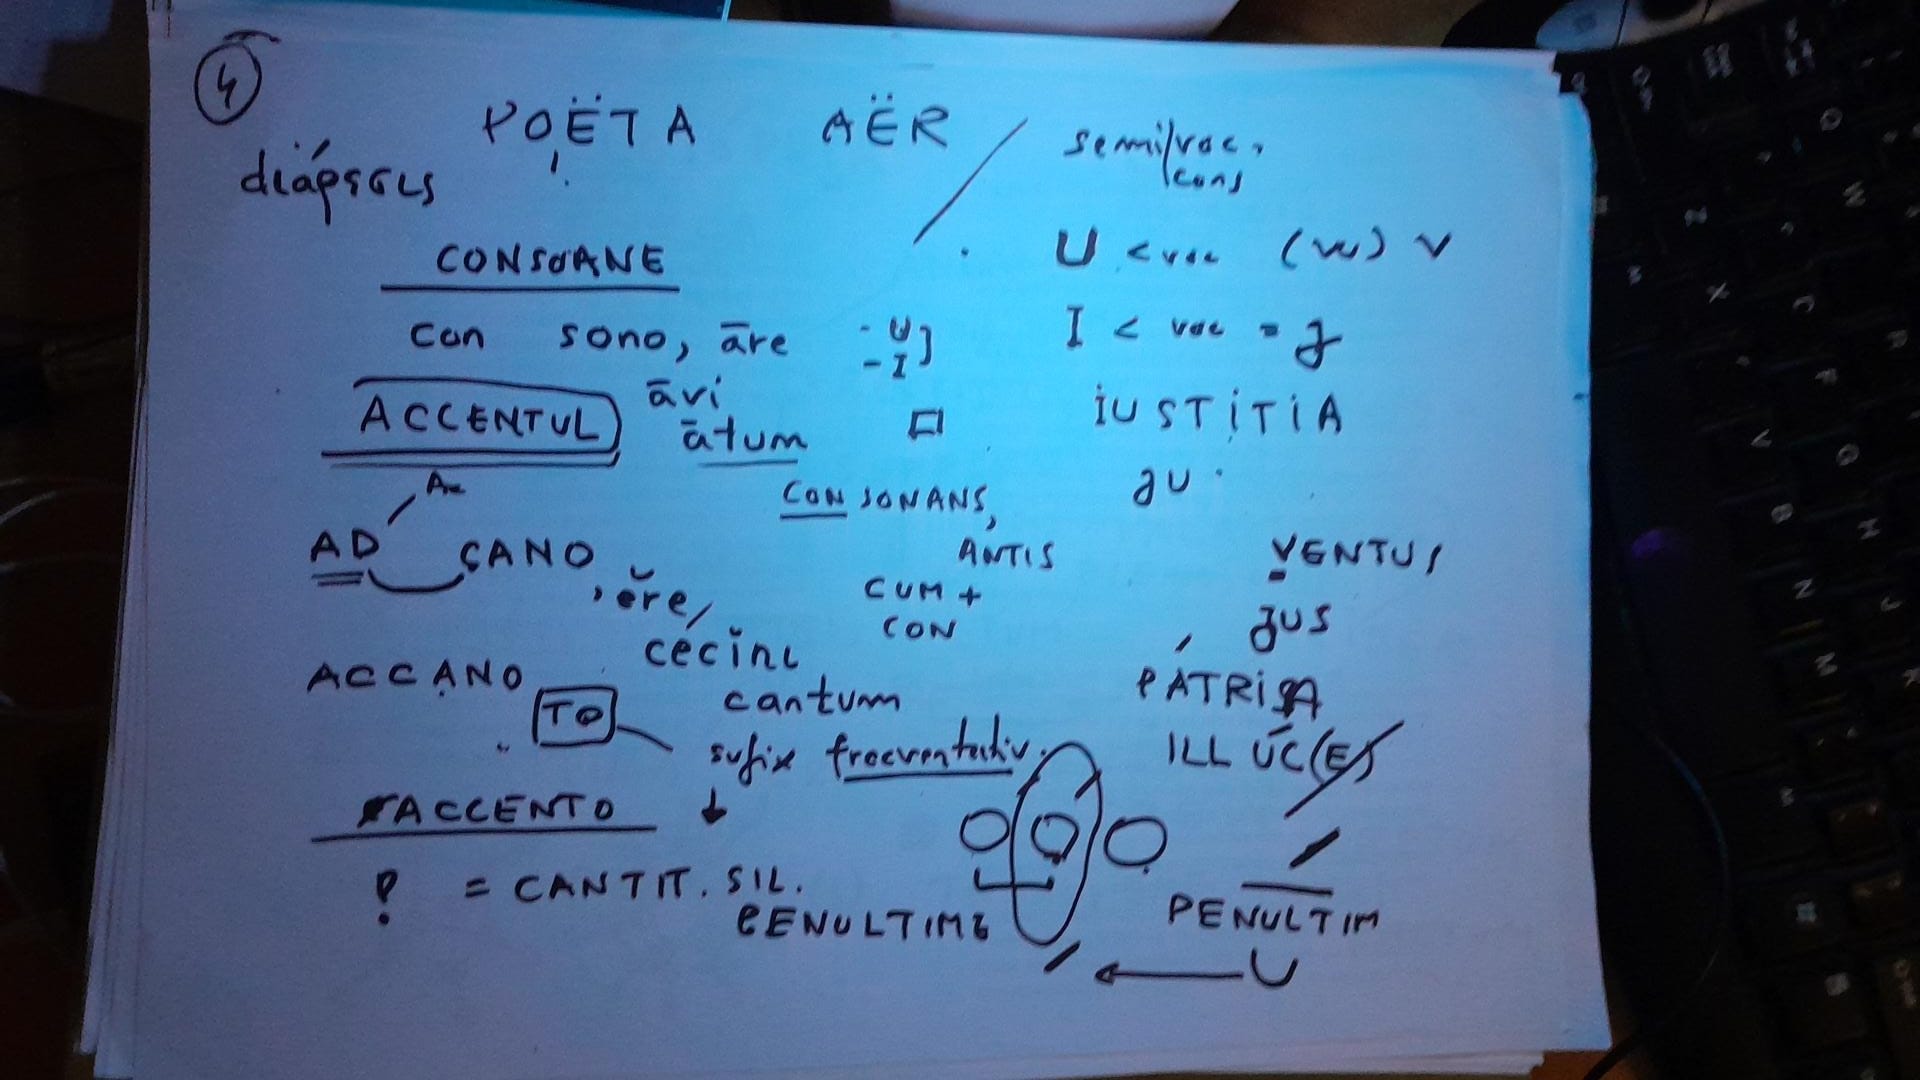 4
POËTA AËR
semi/voc.
cons
CONSOANE
U < voc (w) v
con sono, āre - U
- I
I < voc = j
ACCENTUL
āvi
ātum
IUSTITIA
ju
CONSONANS,
ANTIS
AD CANO, ĕre,
VENTUS
CUM +
CON
jus
cécĭni
ACCANO
cantum
PÁTRIA
TO
sufix frecventativ.
ILLÚC(E)
ACCENTO
? = CANTIT. SIL.
PENULTIME
PENULTIM